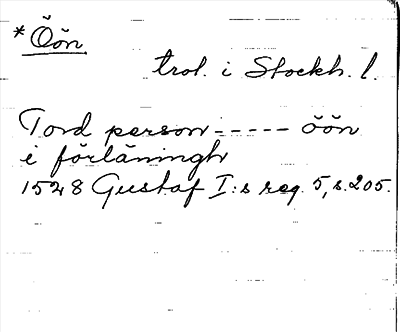 * Öön
trol. i Stockh. l.
Tord person ----- öön
i förläningh
1528 Gustaf I:s reg. 5, s. 205.